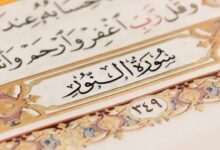 حِسَابُهُۥ عِندَ
وَقُل رَّبِّ ٱغْفِرْ وَٱرْحَمْ وَأَنتَ
سُورَةُ النُّورِ
٣٤٩